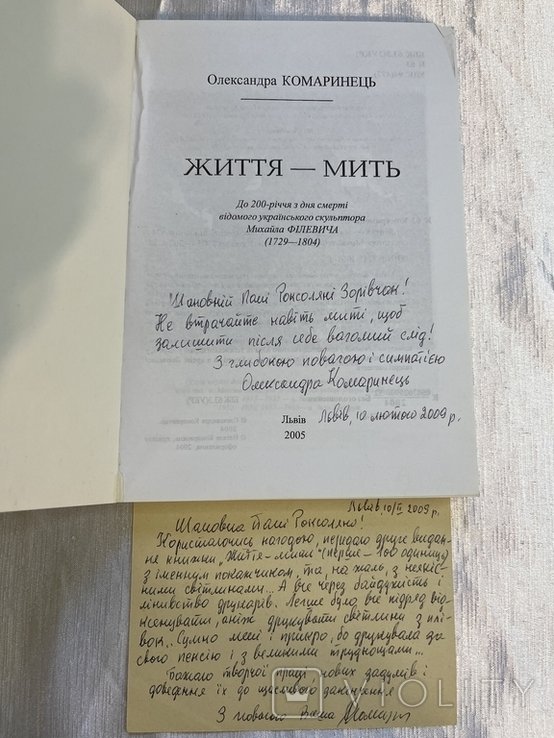 Олександра КОМАРИНЕЦЬ
ЖИТТЯ — МИТЬ
До 200-річчя з дня смерті
відомого українського скульптора
Михайла ФІЛЕВИЧА
(1729—1804)
Шановній Пані Роксоляні Зорівчак!
Не втрачайте навіть миті, щоб
залишити після себе вагомий слід!
З глибокою повагою і симпатією
Олександра Комаринець
Львів, 10 лютого 2009 р.
Львів
2005
Львів, 10/II 2009 р.
Шановна Пані Роксоляно!
Користаючись нагодою, передаю друге видан-
ня книжки „Життя – мить" (перше – 100 одиниць)
з іменним покажчиком, та, на жаль, з неякіс-
ними світлинами... А все через байдужість і
лінивство друкарів. Легше було все підряд від-
ксенувати, аніж друкувати світлини з плі-
вок. Сумно мені і прикро, бо друкувала за
свою пенсію і з великими труднощами...
Бажаю творчої праці нових задумів і
доведення їх до щасливого закінчення
З повагою Ваша
VIOLITY